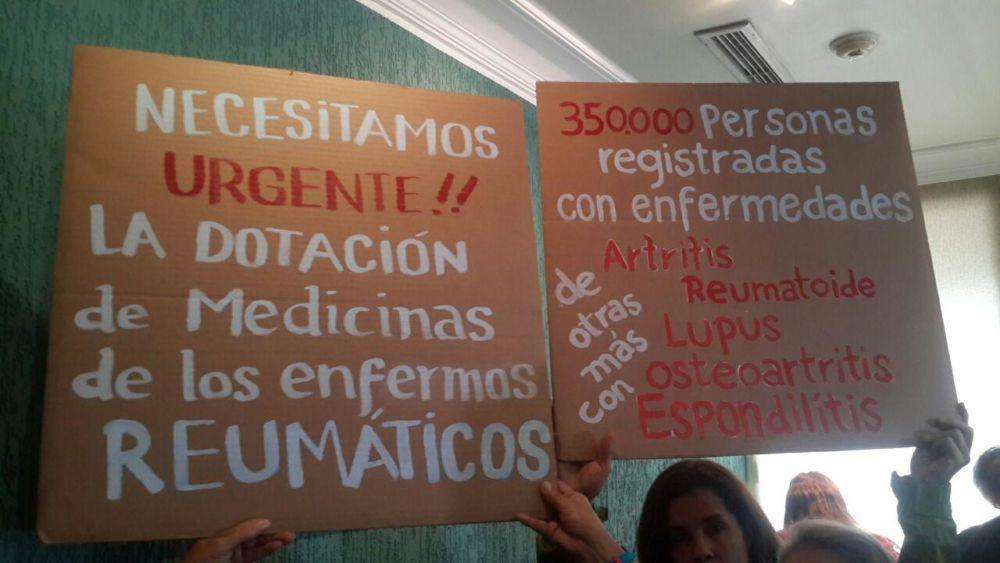 NECESITAMOS
URGENTE!!
LA DOTACIÓN
de Medicinas
de los enfermos
REUMÁTICOS
350.000 Personas
registradas
con enfermedades
de
otras
más
con
Artritis
Reumatoide
Lupus
osteoartritis
Espondilítis